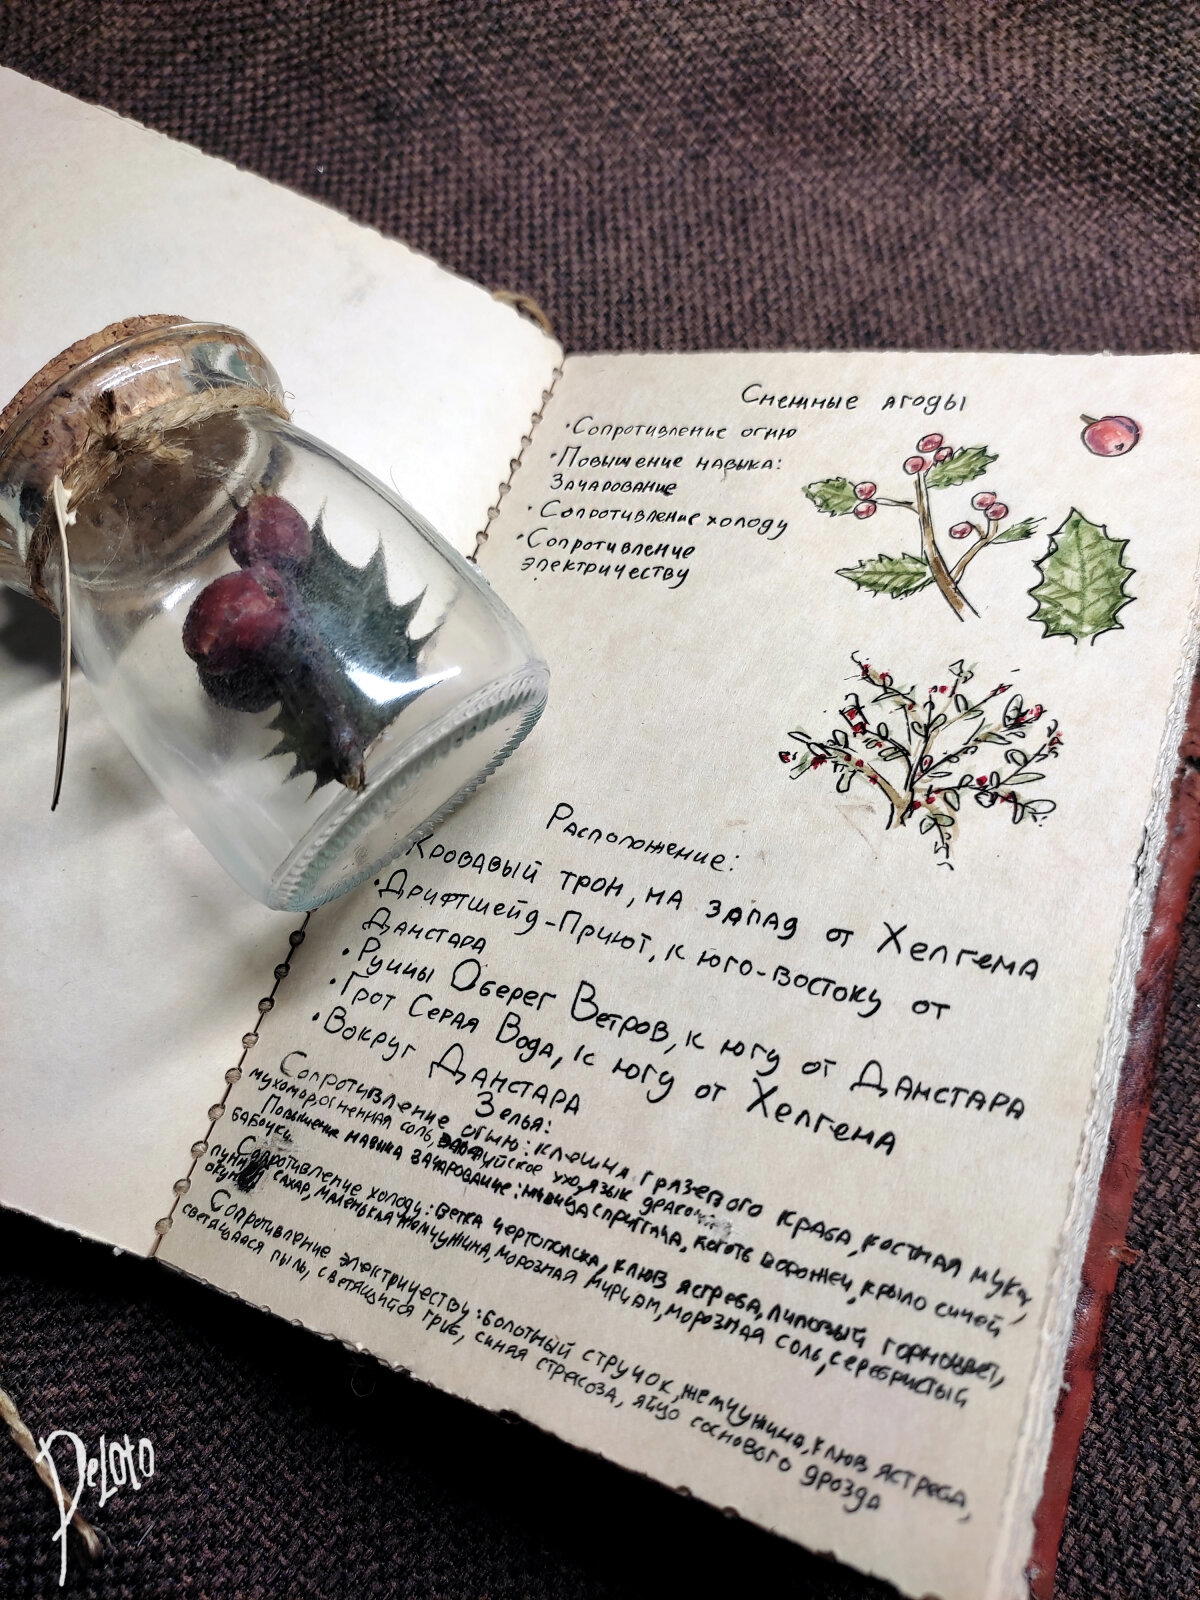 Снежные ягоды
•Сопротивление огню
•Повышение навыка:
Зачарование
•Сопротивление холоду
•Сопротивление
электричеству
Расположение:
Кровавый трон, на запад от Хелгена
•Дрифтшейд-Приют, к юго-востоку от
Данстара
•Руины Оберег Ветров, к югу от Данстара
•Грот Серая Вода, к югу от Хелгена
•Вокруг Данстара
Зелья:
Сопротивление огню: клешня грязевого краба, костная мука,
мухомор, огненная соль, ухо, язык дракона
Повышение навыка зачарование: сприггана, коготь ворожеи, крыло синей
бабочки
Сопротивление холоду: ветка чертополоха, клюв ястреба, лиловый горноцвет,
лунный сахар, маленькая жемчужина, морозная мириам, морозная соль, серебристый
окунь
Сопротивление электричеству: болотный стручок, жемчужина, клюв ястреба,
светящаяся пыль, светящийся гриб, синяя стрекоза, яйцо соснового дрозда
PeLoto